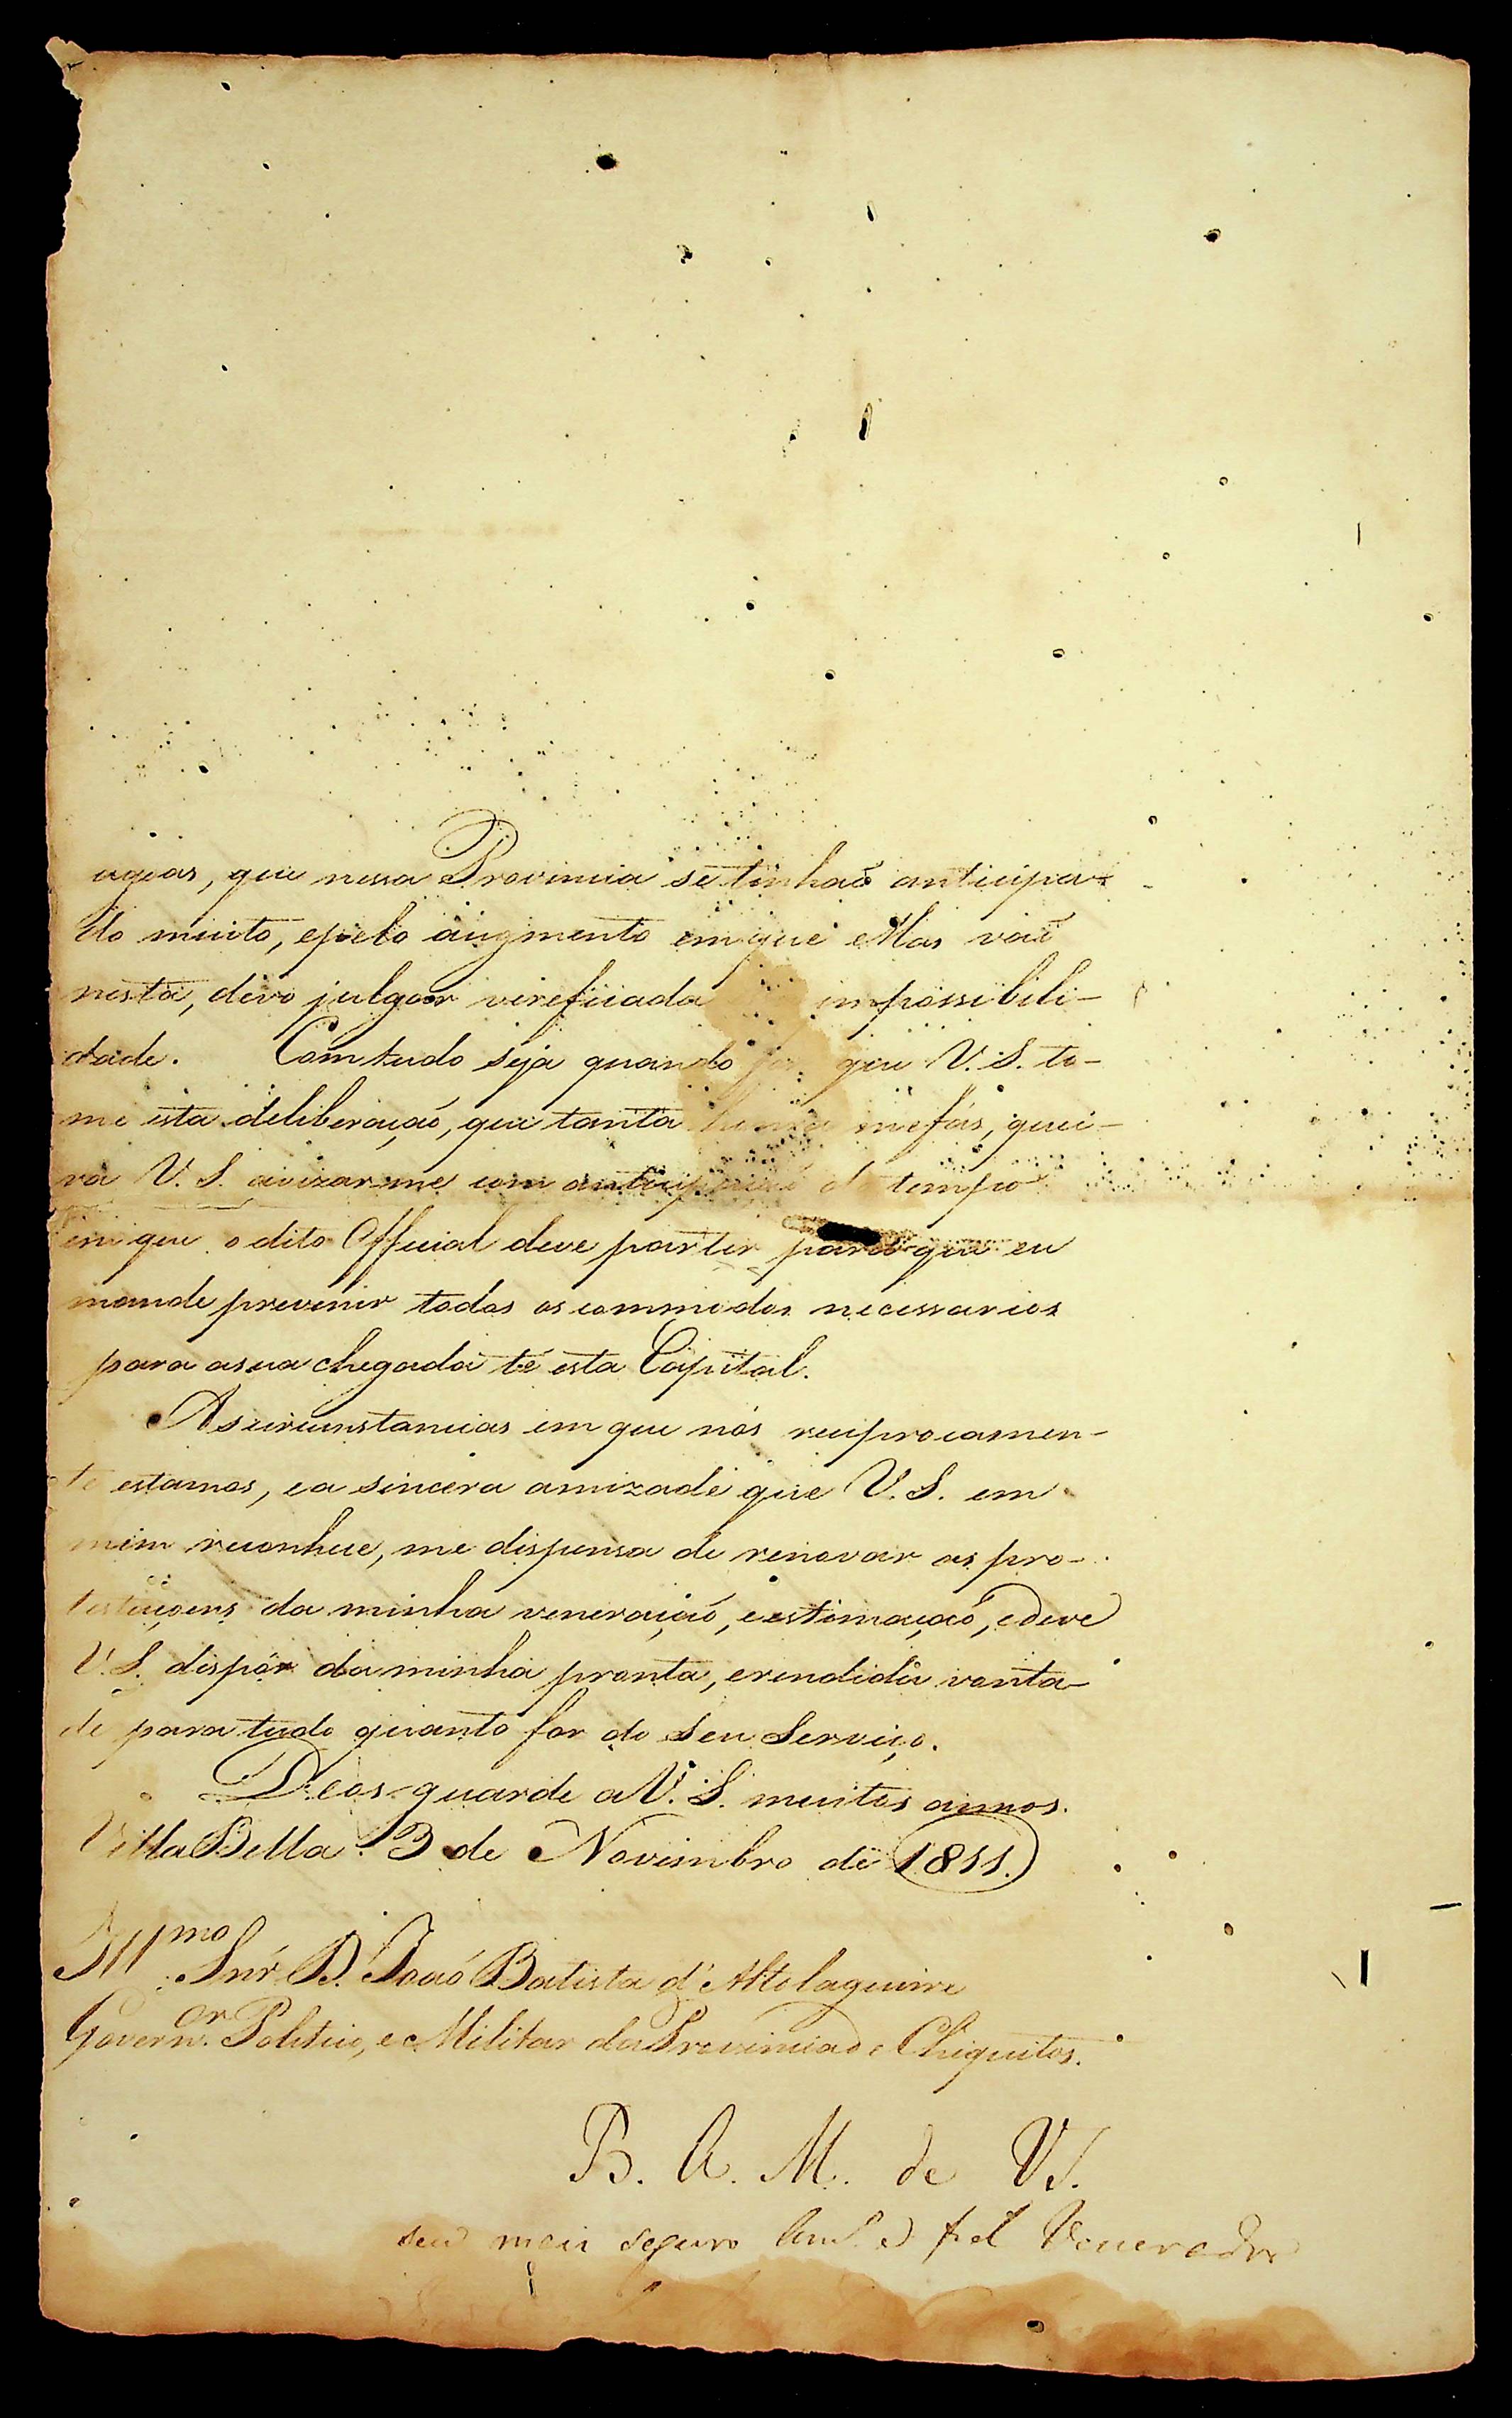 agoas, que nessa Provincia se tinhaõ anticipa-
do muito, epelo augmento emque ellas vaõ
nesta, devo julgar vereficada impossibili-
dade. Comtudo seja quando for que V. S. to-
me esta deliberaçaõ, que tanta honra mefás, quei-
ra V. S. avizarme com anticipaçaõ do tempo
em que o dito Official deve partir para que eu
mande prevenir todos os commodos necessarios
para asua chegada té esta Capital.
As circunstancias em que nós reciprocamen-
te estamos, ea sincera amizade que V. S. em
mim reconhece, me dispensa de renovar as pro-
testaçoens da minha veneraçaõ, eestimaçaõ, edeve
V. S. dispôr da minha pronta, erendida vonta-
de para tudo quanto for do Seu Serviço.
Deos guarde a V. S. muitos annos.
Villa Bella 3 de Novembro de 1811.
Illmo Snr D. Joaõ Batista d'Altolaguirre
Governor. Politico, e Militar da Provincia de Chiquitos.
B. A. M. de VS.
seu mais seguro e fiel Venerador